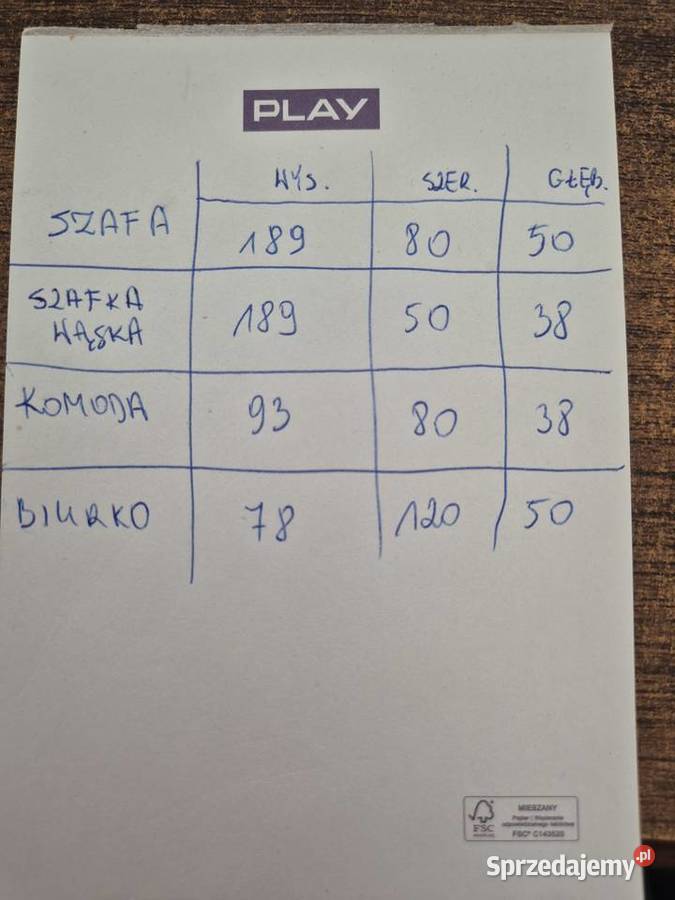 PLAY
WYS. SZER. GŁĘB.
SZAFA 189 80 50
SZAFKA
WĄSKA 189 50 38
KOMODA 93 80 38
BIURKO 78 120 50
MIESZANY
FSC
FSC® C143520
Sprzedajemy.pl